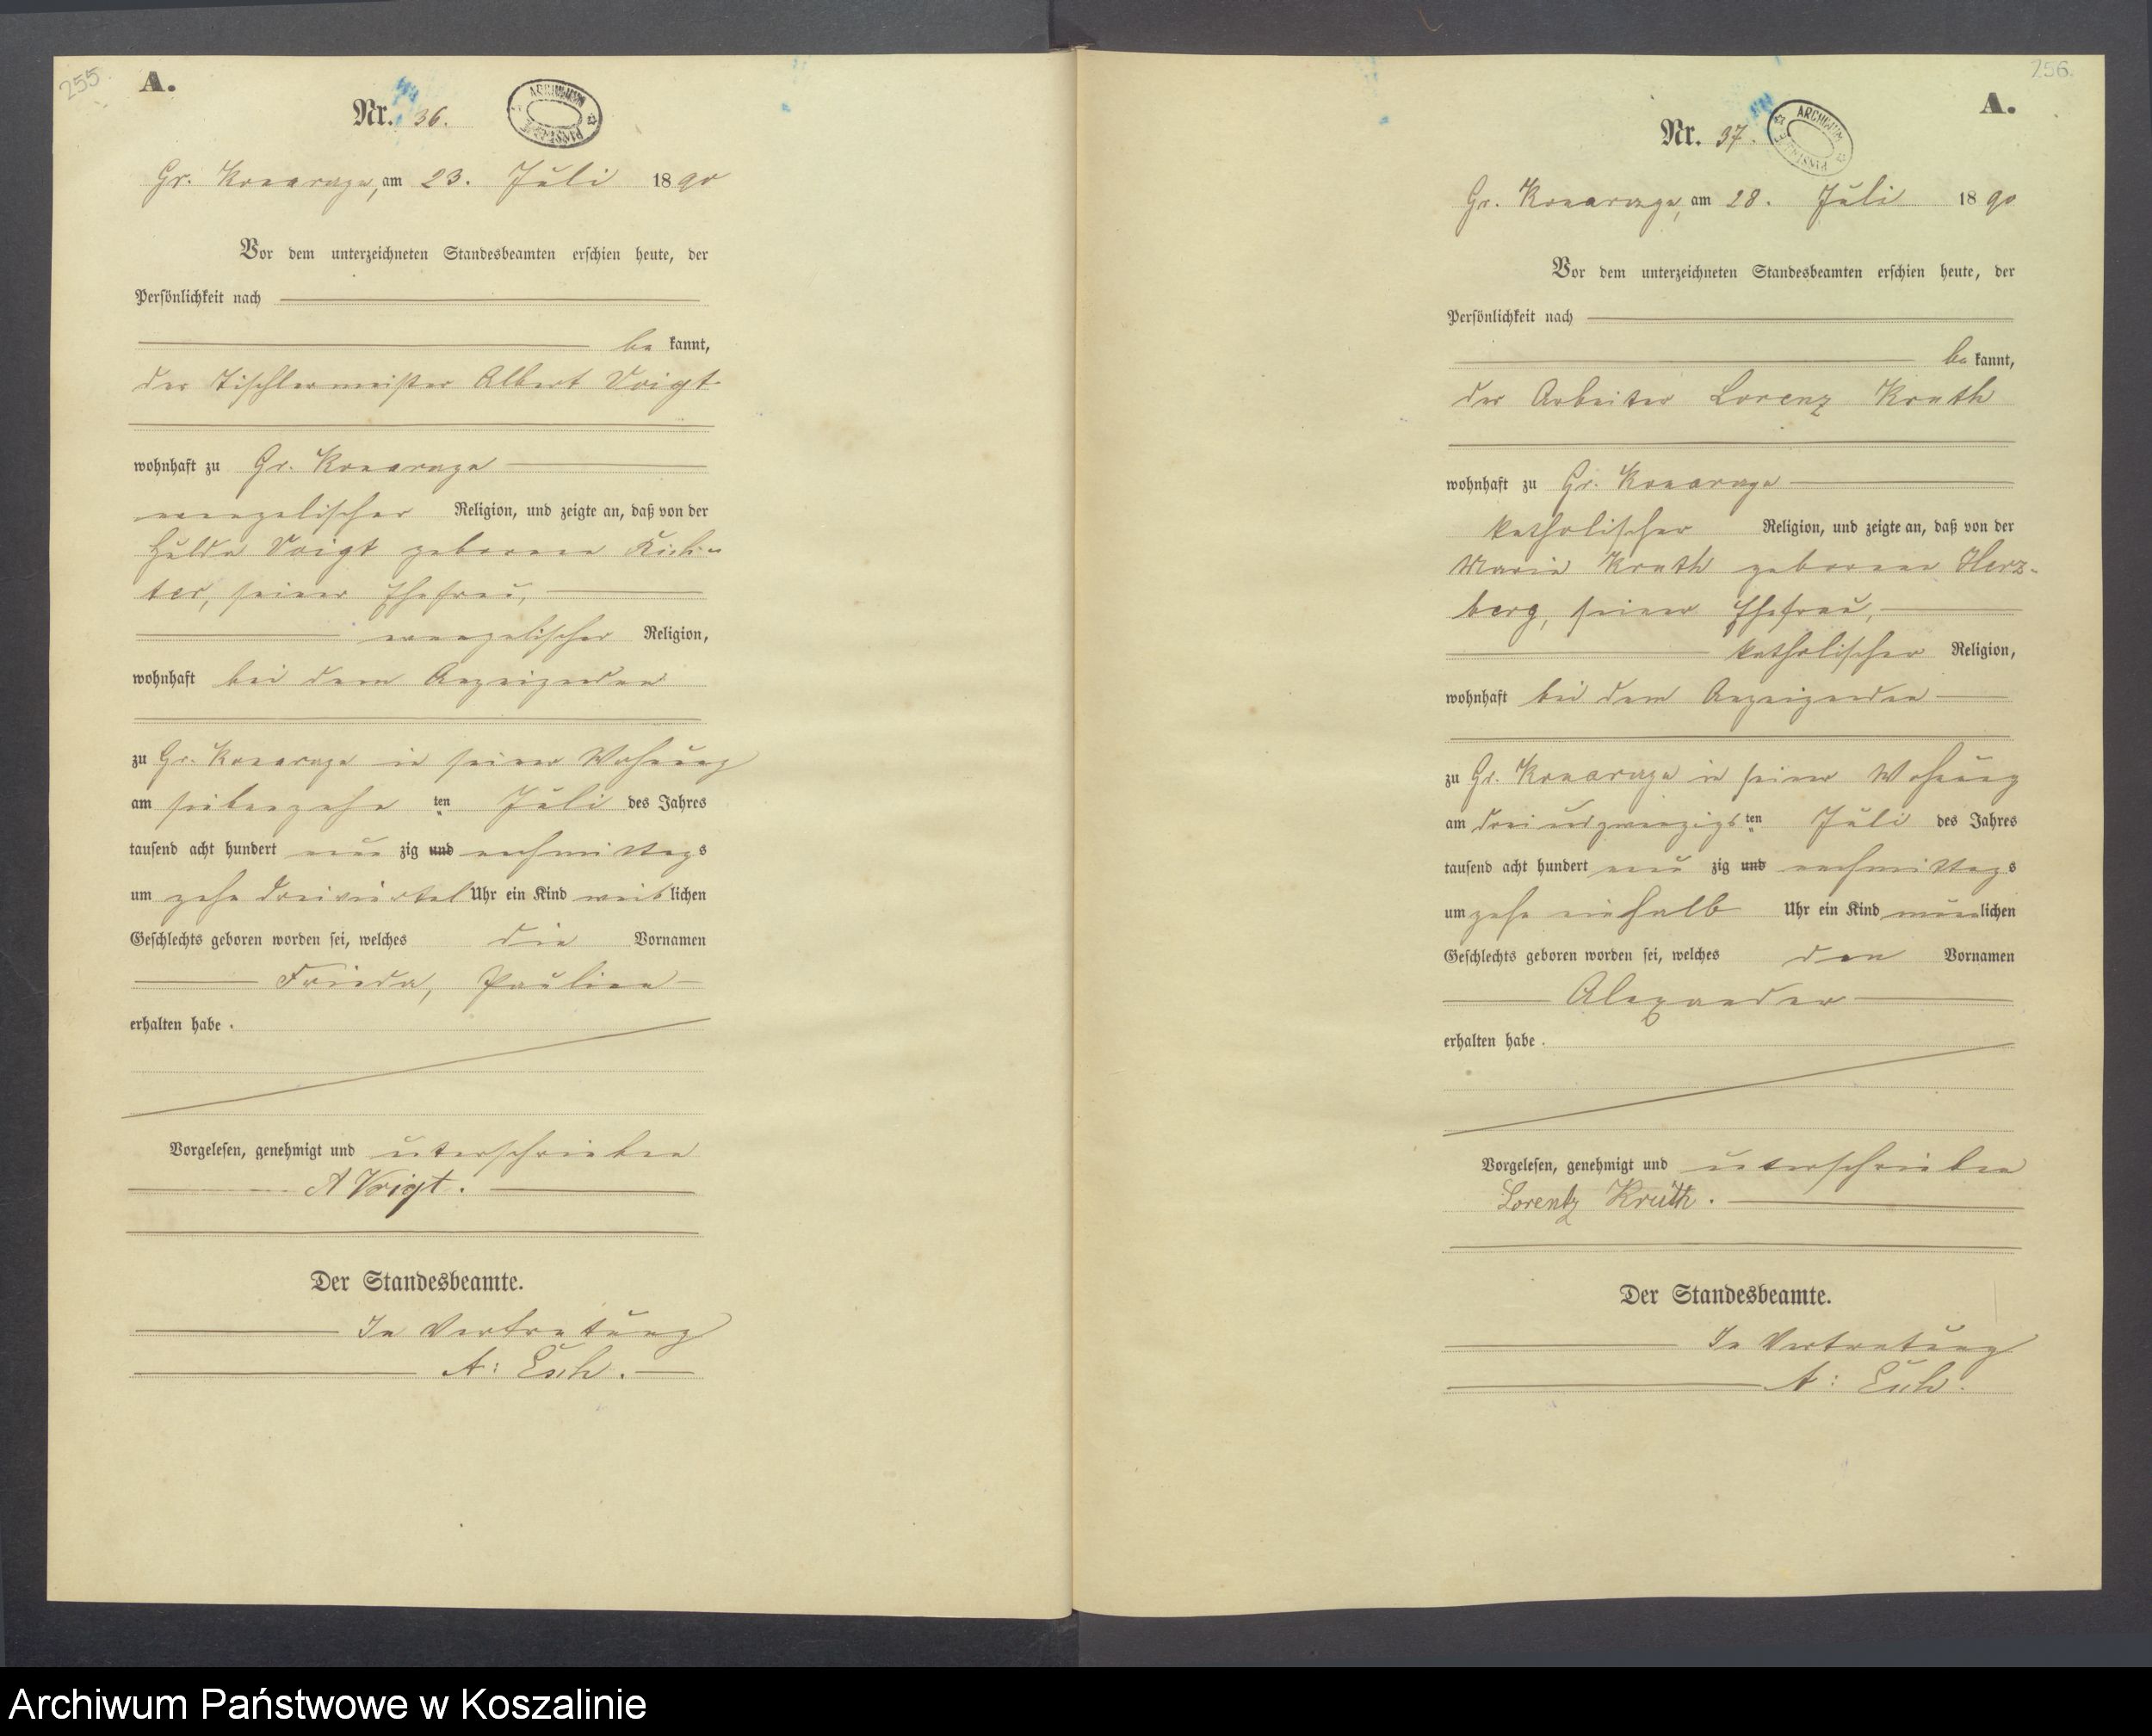 255.
A.
Nr. 36.
ARCHIWUM PAŃSTWOWE
Gr. Konarczyn, am 23. Juli 1890
Vor dem unterzeichneten Standesbeamten erschien heute, der
Persönlichkeit nach
be kannt,
der Tischlermeister Albert Voigt
wohnhaft zu Gr. Konarczyn
evangelischer Religion, und zeigte an, daß von der
Hulda Voigt geborenen Rich-
ter, seiner Ehefrau,
evangelischer Religion,
wohnhaft bei dem Anzeigenden
zu Gr. Konarczyn in seiner Wohnung
am siebenzehn ten Juli des Jahres
tausend acht hundert neun zig und nachmittags
um zehn dreiviertel Uhr ein Kind weiblichen
Geschlechts geboren worden sei, welches die Vornamen
Frieda, Pauline
erhalten habe.
Vorgelesen, genehmigt und unterschrieben
A Voigt.
Der Standesbeamte.
In Vertretung
A:
256.
A.
Nr. 37.
ARCHIWUM PAŃSTWOWE
Gr. Konarczyn, am 28. Juli 1890
Vor dem unterzeichneten Standesbeamten erschien heute, der
Persönlichkeit nach
be kannt,
der Arbeiter Lorenz Kruth
wohnhaft zu Gr. Konarczyn
katholischer Religion, und zeigte an, daß von der
Maria Kruth geborenen Herz-
berg, seiner Ehefrau,
katholischer Religion,
wohnhaft bei dem Anzeigenden
zu Gr. Konarczyn in seiner Wohnung
am dreiundzwanzigsten Juli des Jahres
tausend acht hundert neun zig und nachmittags
um zehn einhalb Uhr ein Kind männlichen
Geschlechts geboren worden sei, welches den Vornamen
Alexander
erhalten habe.
Vorgelesen, genehmigt und unterschrieben
Lorentz Kruth.
Der Standesbeamte.
In Vertretung
A:
Archiwum Państwowe w Koszalinie